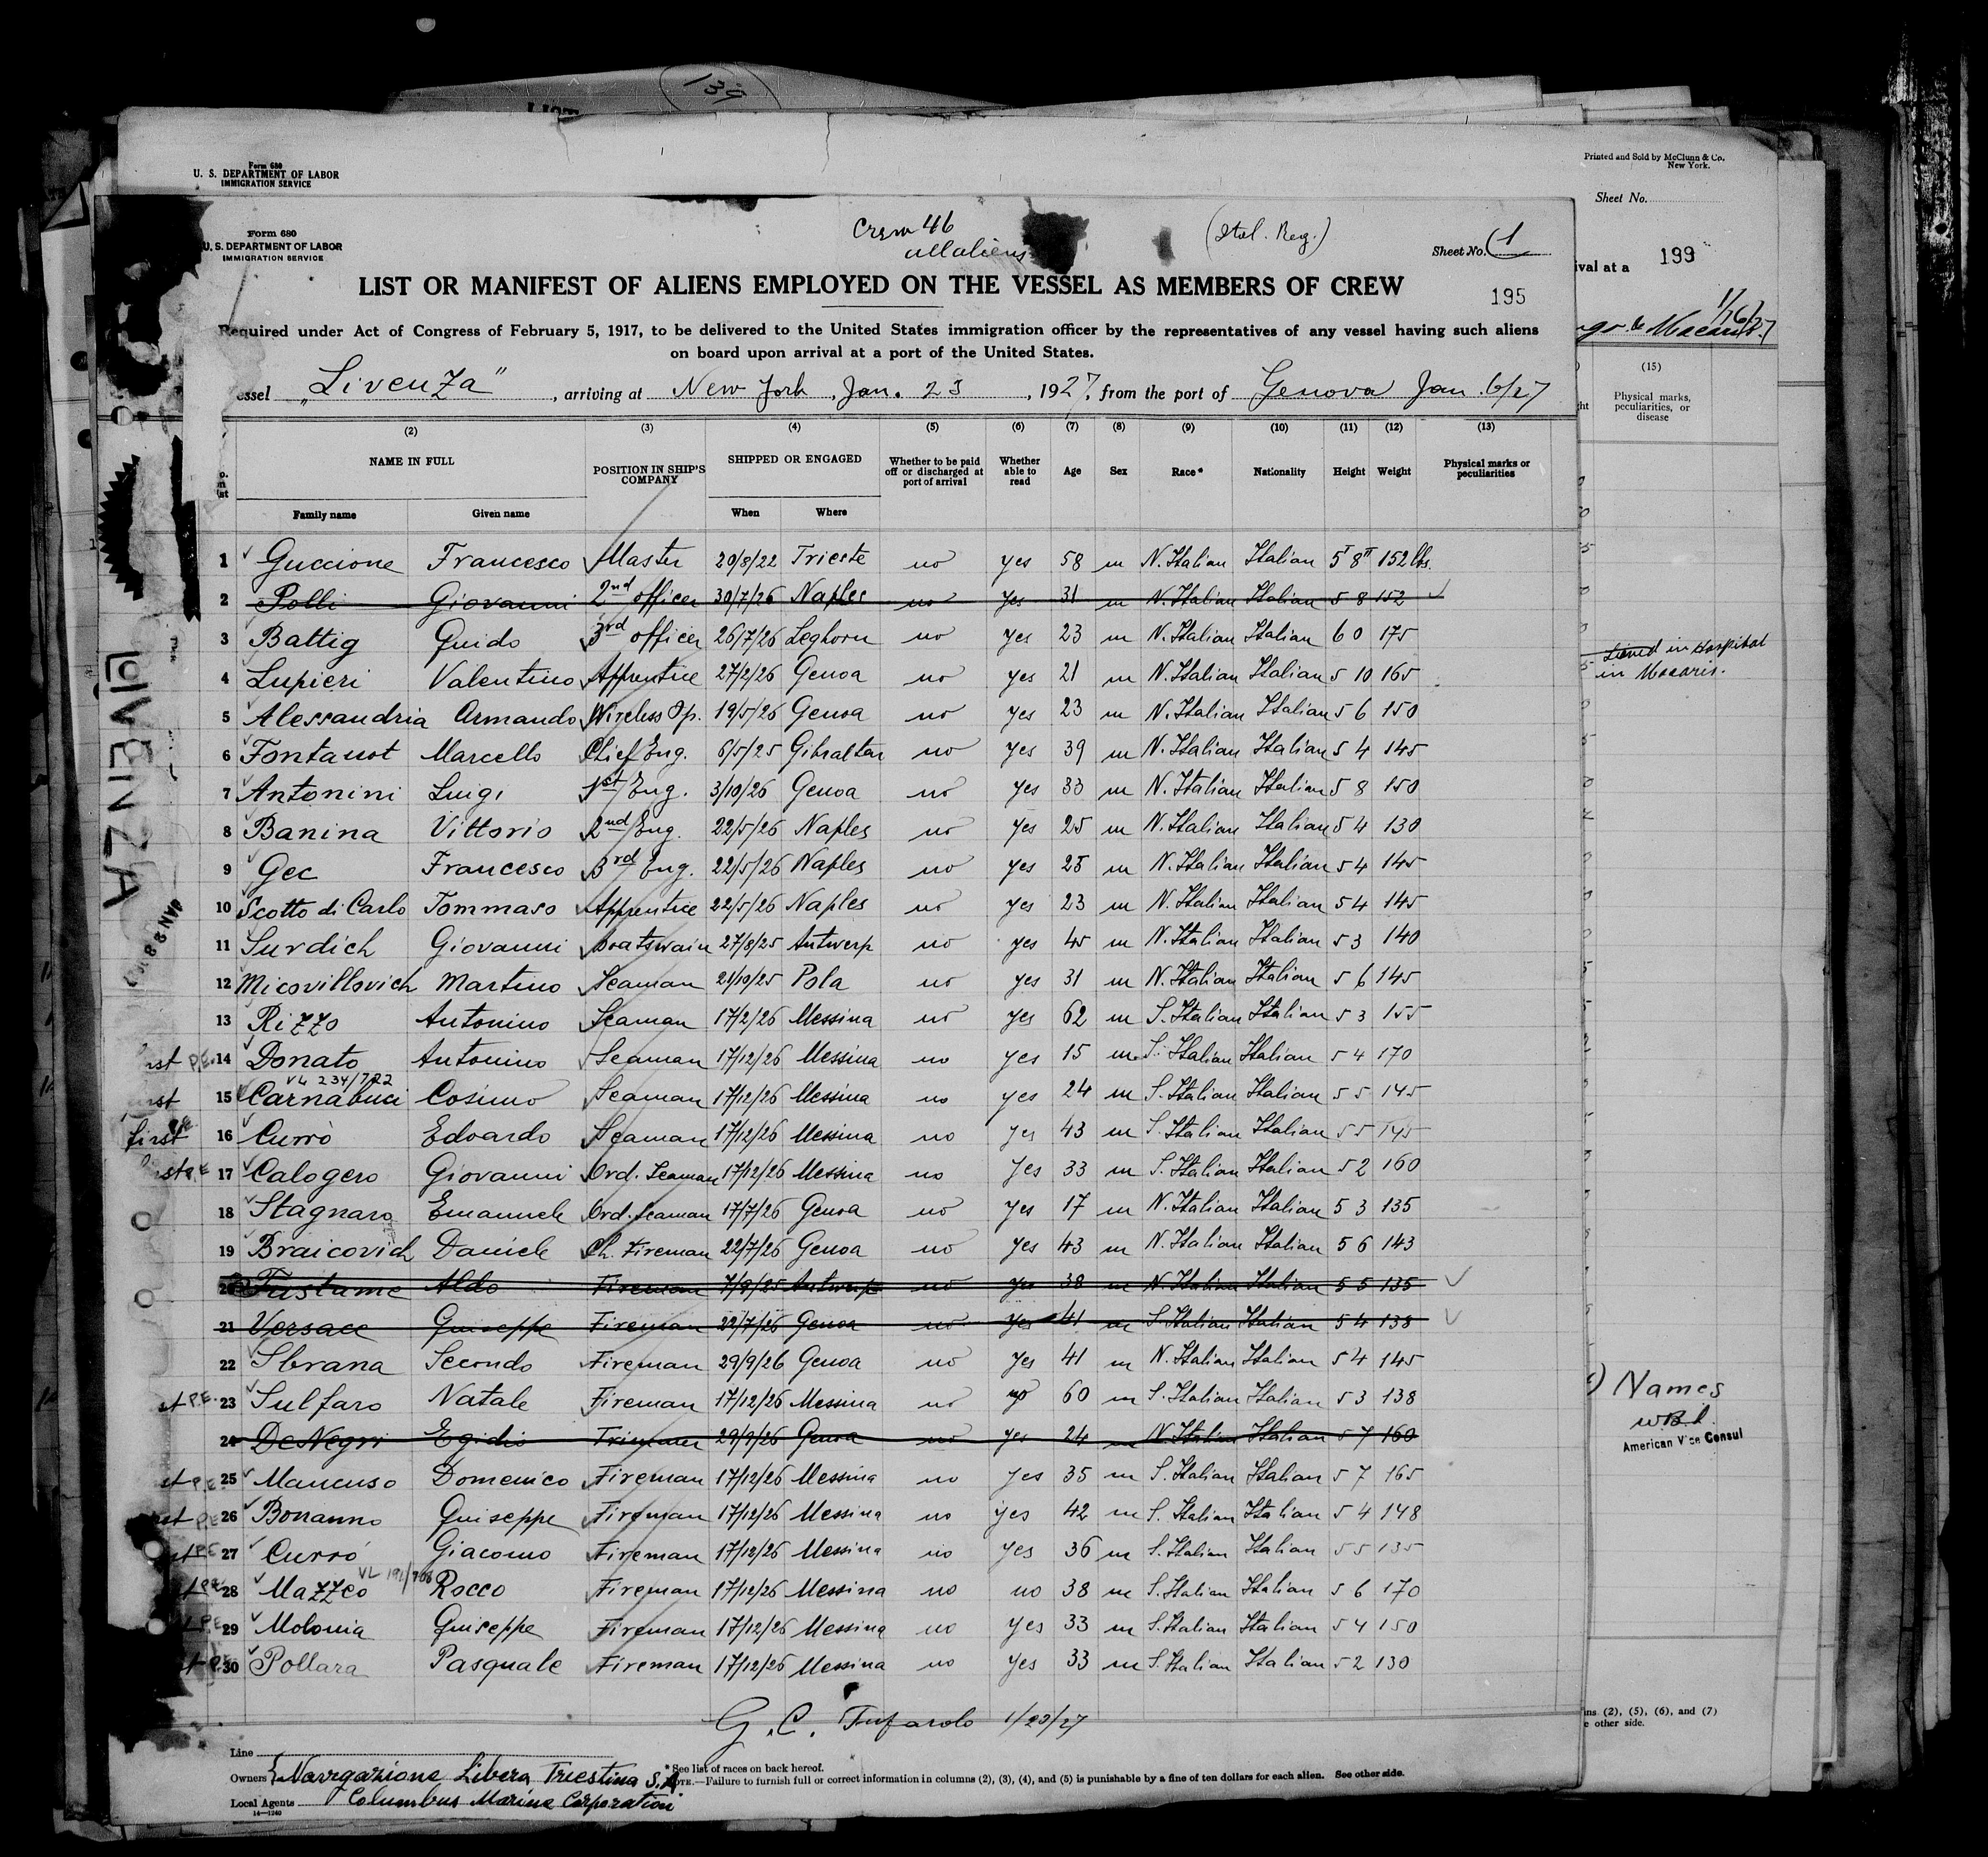 139
Form 680
U. S. DEPARTMENT OF LABOR
IMMIGRATION SERVICE
Printed and Sold by McClunn & Co.
New York.
Sheet No.
199
ival at a
1/6/27
(15)
Physical marks,
peculiarities, or
disease
in Hospital
in Macoris.
Names
American Vice Consul
ns (2), (5), (6), and (7)
e other side.
LIVENZA
Form 680
U. S. DEPARTMENT OF LABOR
IMMIGRATION SERVICE
Crew 46
all aliens
(Ital. Reg.)
Sheet No. 1
195
LIST OR MANIFEST OF ALIENS EMPLOYED ON THE VESSEL AS MEMBERS OF CREW
Required under Act of Congress of February 5, 1917, to be delivered to the United States immigration officer by the representatives of any vessel having such aliens
on board upon arrival at a port of the United States.
essel "Livenza", arriving at New York, Jan. 23, 1927, from the port of Genova Jan. 6/27
(2) (3) (4) (5) (6) (7) (8) (9) (10) (11) (12) (13)
NAME IN FULL POSITION IN SHIP'S COMPANY SHIPPED OR ENGAGED Whether to be paid off or discharged at port of arrival Whether able to read Age Sex Race* Nationality Height Weight Physical marks or peculiarities
Family name Given name When Where
1 Guccione Francesco Master 20/8/22 Trieste no yes 58 m N. Italian Italian 5' 8" 152 lbs.
2 Polli Giovanni 2nd officer 30/7/26 Naples no yes 31 m N. Italian Italian 5 8 152
3 Battig Guido 3rd officer 26/7/26 Leghorn no yes 23 m N. Italian Italian 6 0 175
4 Lupieri Valentino Apprentice 27/2/26 Genoa no yes 21 m N. Italian Italian 5 10 165
5 Alessandria Armando Wireless Op. 19/5/26 Genoa no yes 23 m N. Italian Italian 5 6 150
6 Fontanot Marcello Chief Eng. 6/5/25 Gibraltar no yes 39 m N. Italian Italian 5 4 145
7 Antonini Luigi 1st Eng. 3/10/26 Genoa no yes 33 m N. Italian Italian 5 8 150
8 Banina Vittorio 2nd Eng. 22/5/26 Naples no yes 25 m N. Italian Italian 5 4 130
9 Gec Francesco 3rd Eng. 22/5/26 Naples no yes 25 m N. Italian Italian 5 4 145
10 Scotto di Carlo Tommaso Apprentice 22/5/26 Naples no yes 23 m N. Italian Italian 5 4 145
11 Surdich Giovanni Boatswain 27/8/25 Antwerp no yes 45 m N. Italian Italian 5 3 140
12 Micovillovich Martino Seaman 21/10/25 Pola no yes 31 m N. Italian Italian 5 6 145
13 Rizzo Antonino Seaman 17/2/26 Messina no yes 62 m S. Italian Italian 5 3 155
P.E. 14 Donato Antonino Seaman 17/12/26 Messina no yes 15 m S. Italian Italian 5 4 170
VL 234/722
15 Carnabuci Cosimo Seaman 17/12/26 Messina no yes 24 m S. Italian Italian 5 5 145
first 16 Currò Edoardo Seaman 17/12/26 Messina no yes 43 m S. Italian Italian 5 5 145
17 Calogero Giovanni Ord. Seaman 17/12/26 Messina no yes 33 m S. Italian Italian 5 2 160
18 Stagnaro Emanuele Ord. Seaman 17/7/26 Genoa no yes 17 m N. Italian Italian 5 3 135
19 Braicovich Daniele Ch. Fireman 22/7/26 Genoa no yes 43 m N. Italian Italian 5 6 143
20 Aldo Fireman 7/8/25 Antwerp no yes 38 m N. Italian Italian 5 5 135
21 Versace Guiseppe Fireman 22/7/26 Genoa no yes 41 m S. Italian Italian 5 4 138
22 Sbrana Secondo Fireman 29/9/26 Genoa no yes 41 m N. Italian Italian 5 4 145
P.E. 23 Sulfaro Natale Fireman 17/12/26 Messina no no 60 m S. Italian Italian 5 3 138
24 DeNegri Egidio Trimmer 29/9/26 Genoa no yes 24 m N. Italian Italian 5 7 160
P.E. 25 Mancuso Domenico Fireman 17/12/26 Messina no yes 35 m S. Italian Italian 5 7 165
P.E. 26 Bonanno Guiseppe Fireman 17/12/26 Messina no yes 42 m S. Italian Italian 5 4 148
P.E. 27 Currò Giacomo Fireman 17/12/26 Messina no yes 36 m S. Italian Italian 5 5 135
P.E. 28 Mazzeo Rocco Fireman 17/12/26 Messina no no 38 m S. Italian Italian 5 6 170
P.E. 29 Molonia Guiseppe Fireman 17/12/26 Messina no yes 33 m S. Italian Italian 5 4 150
30 Pollara Pasquale Fireman 17/12/26 Messina no yes 33 m S. Italian Italian 5 2 130
G. C. Tufarolo 1/23/27
Line
Owners Navigazione Libera Triestina S.A.
Local Agents Columbus Marine Corporation
14—1240
* See list of races on back hereof.
NOTE.—Failure to furnish full or correct information in columns (2), (3), (4), and (5) is punishable by a fine of ten dollars for each alien. See other side.